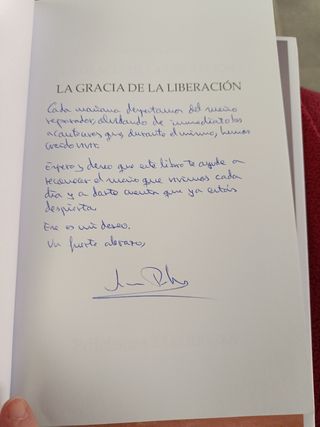 LA GRACIA DE LA LIBERACIÓN
Cada mañana despertamos del sueño
reparador, olvidando de inmediato los
que, durante el mismo, hemos
creído vivir.
Espero y deseo que este libro te ayude a
reconocer el sueño que vivimos cada
día y a darte cuenta que ya estás
despierta.
Ese es mi deseo.
Un fuerte abrazo,